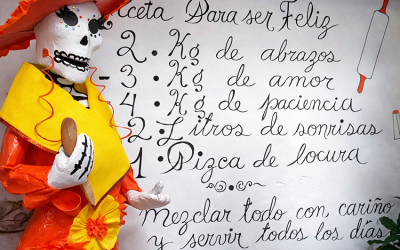 ceta Para ser Feliz
2. Kg de abrazos
3. Kg de amor
4. Kg de paciencia
2. Litros de sonrisas
1. Pizca de locura
Mezclar todo con cariño
y servir todos los días